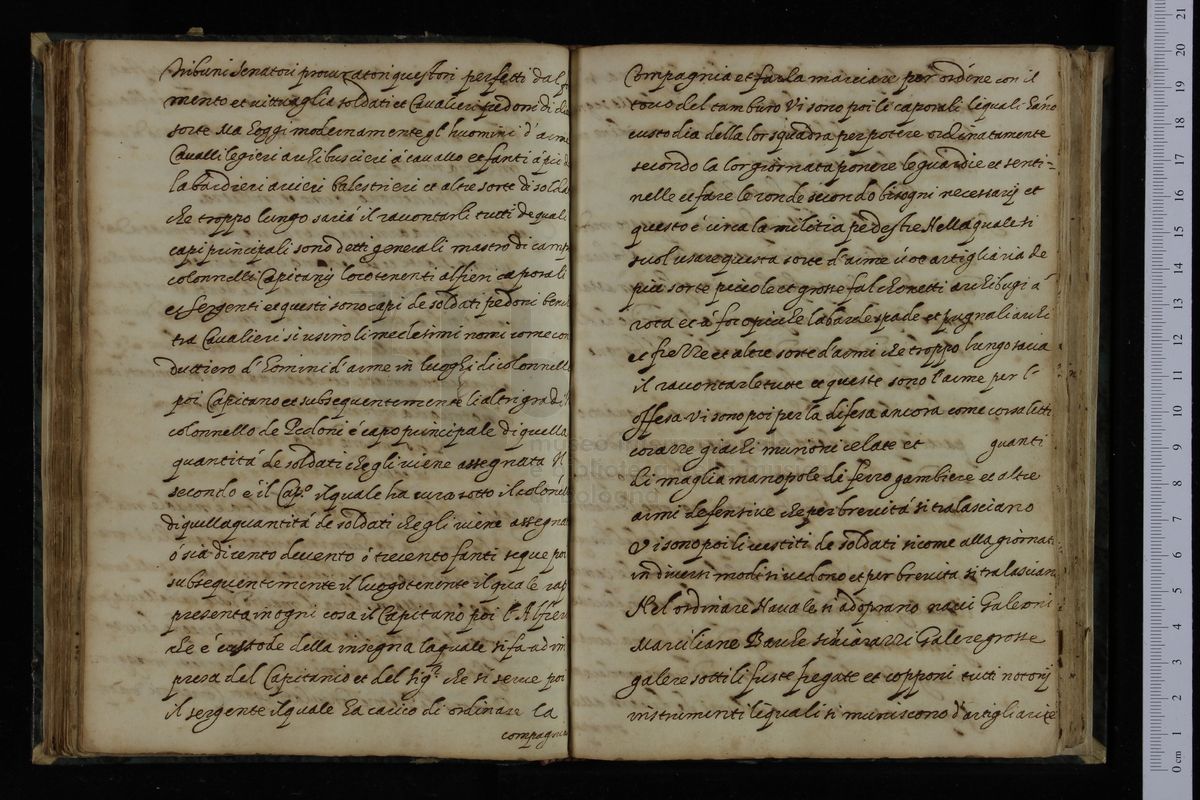 Tribuni Senatori procuratori questori perfetti dal
mento et vittuaglia soldati et Cavalieri pedoni di
sorte Ma hoggi modernamente gl' huomini d' arme
Cavalli legieri archibuscieri á cavallo et fanti á pié
labardieri arcieri balestrieri et altre sorte di solda
che troppo lungo saria il racontarli tutti de quali
capi principali sono detti generali mastro di camp
colonnelli Capitanij locotenenti alfieri caporali
et Sergenti et questi sono capi de soldati pedoni
tra Cavalieri si usino li medesimi nomi come con
duttiero d' homini d' arme in luoghi di colonnello
poi Capitano et subsequentemente li altri gradi Il
colonnello de Pedoni é capo principale di quella
quantitá de soldati che gli viene assegnata Il
secondo é il Cap.º il quale ha cura sotto il colonello
di quella quantitá de soldati che gli viene assegna
ó sia di cento ducento ó trecento fanti segue poi
subsequentemente il luogotenente il quale rap
presenta in ogni cosa il Capitano poi l' Alfier
che é custode della insegna la quale si fa ad im
presa del Capitanio et del sig.re che si serve poi
il sergente il quale ha carico di ordinare la
compagnia
Compagnia et farla marciare per ordine con il
tono del tamburo Vi sono poi li caporali li quali hano
custodia della lor squadra per potere ordinatamente
secondo la lor giornata ponere le guardie et senti=
nelle et fare le ronde secondo bisogni necessarij et
questo é circa la militia pedestre Nella quale si
suol usare questa sorte d'arme artigliaria de
piú sorte piccole et grosse falchonetti archibugi á
rota et á foco picche labarde spade et pugnali archi
et frezze et altre sorte d'armi che troppo lungo saria
il racontarle tute et queste sono l'arme per l'
offesa vi sono poi per la difesa ancora come corsaletti
corazze giachi murioni celate et guanti
di maglia manopole di ferro gambiere et altre
armi defensive che per brevitá si tralasciano
Vi sono poi li vestiti de soldati sicome alla giornata
in diversi modi si vedono et per brevita si tralascian
Nel ordinare Navale si adoprano navi Galeoni
Marciliane Barche Galere grosse
galere sottili fuste fregate et copponi tutti notorij
instrumenti li quali si muniscono d'artigliarie